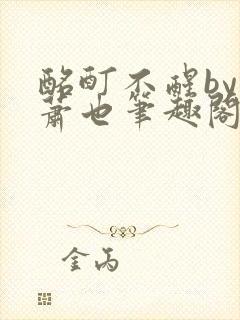 酩酊不醒by
萧也笔趣阁
金丙